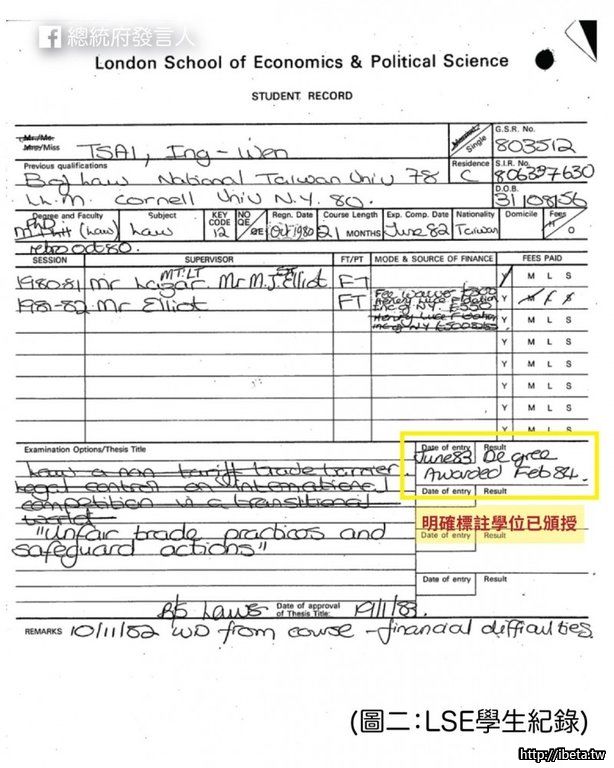 總統府發言人
London School of Economics & Political Science
STUDENT RECORD
Mr./Ms.
Mrs/Miss TSAI, Ing-Wen
Single
G.S.R. No.
803512
Previous qualifications
Residence
C
S.I.R. No.
806337630
Law National Taiwan Univ 78
LL.M. Cornell Univ N.Y. 80.
D.O.B.
310856
Degree and Faculty Subject KEY CODE NO QE/QE Regn. Date Course Length Exp. Comp. Date Nationality Domicile Fees
PhD
(Law) Law 12 Oct 1980 21 MONTHS June 82 Taiwan H O
retro Oct 80.
SESSION SUPERVISOR FT/PT MODE & SOURCE OF FINANCE FEES PAID
MT:LT
1980-81 Mr Lazar Mr M.J. Elliot FT Y M L S
1981-82 Mr Elliot FT Fee Waiver Y M L S
Y M L S
Y M L S
Y M L S
Y M L S
Y M L S
Examination Options/Thesis Title
Date of entry Result
June 83 Degree
Awarded Feb 84.
Law a non tariff trade barrier.
Legal control on International
competition in a transitional
world
Date of entry Result
明確標註學位已頒授
"Unfair trade practices and
safeguard actions"
Date of entry Result
Date of entry Result
Laws Date of approval of Thesis Title 19/1/83.
REMARKS 10/11/82 WD from course - financial difficulties.
(圖二:LSE學生紀錄)
http://ibeta.tw